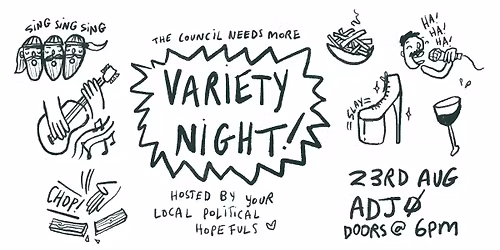 SING SING SING
THE COUNCIL NEEDS MORE
VARIETY
NIGHT!
HOSTED BY YOUR
LOCAL POLITICAL
HOPEFULS
HA!
HA!
HA!
=SLAY=
CHOP!
23RD AUG
ADJØ
DOORS @ 6PM